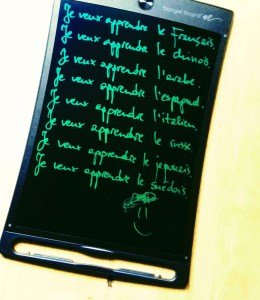 boogie board
Je veux apprendre le Français.
Je veux apprendre le
Je veux apprendre l'arabe.
Je veux apprendre l'espagnol.
Je veux apprendre l'italien.
Je veux apprendre le russe.
Je veux apprendre le japonais
Je veux apprendre le suédois